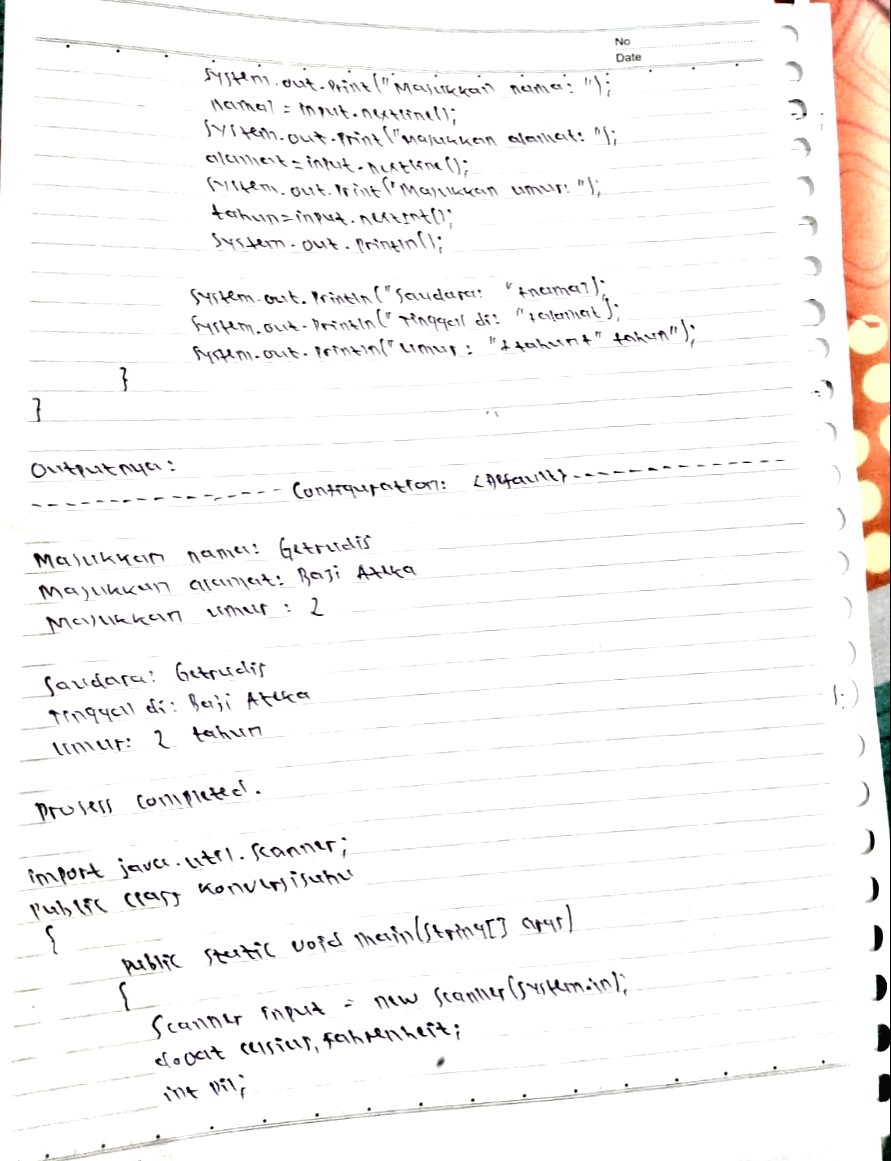 No
Date
System.out.print("Masukkan nama: ");
nama1 = input.nextline();
System.out.print("Masukkan alamat: ");
alamat = input.nextline();
System.out.print("Masukkan umur: ");
tahun = input.nextInt();
System.out.println();
System.out.println("Saudara: "+nama1);
System.out.println("Tinggal di: "+alamat);
System.out.println("Umur: "+tahun+" tahun");
}
}
Outputnya:
---------------- Configuration: <Default> --------------
Masukkan nama: Getrudis
Masukkan alamat: Baji Ateka
Masukkan umur : 2
Saudara: Getrudis
Tinggal di: Baji Ateka
Umur: 2 tahun
Prosess completed.
import java.util.Scanner;
Public class Konversisuhu
{
public static void main(String[] args)
{
Scanner input = new Scanner(System.in);
float celsius, fahrenheit;
int pil;